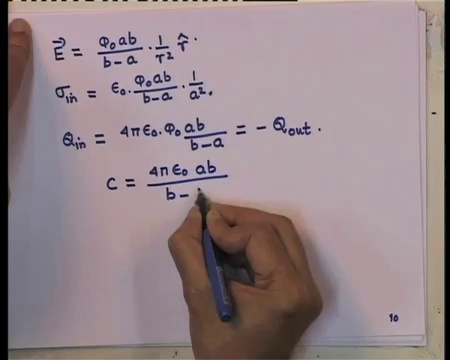 E⃗ = φ₀ab / b-a · 1/r² r̂.
σin = ε₀· φ₀ab / b-a · 1/a².
Qin = 4πε₀·φ₀ ab / b-a = - Qout.
C = 4πε₀ ab / b-
10